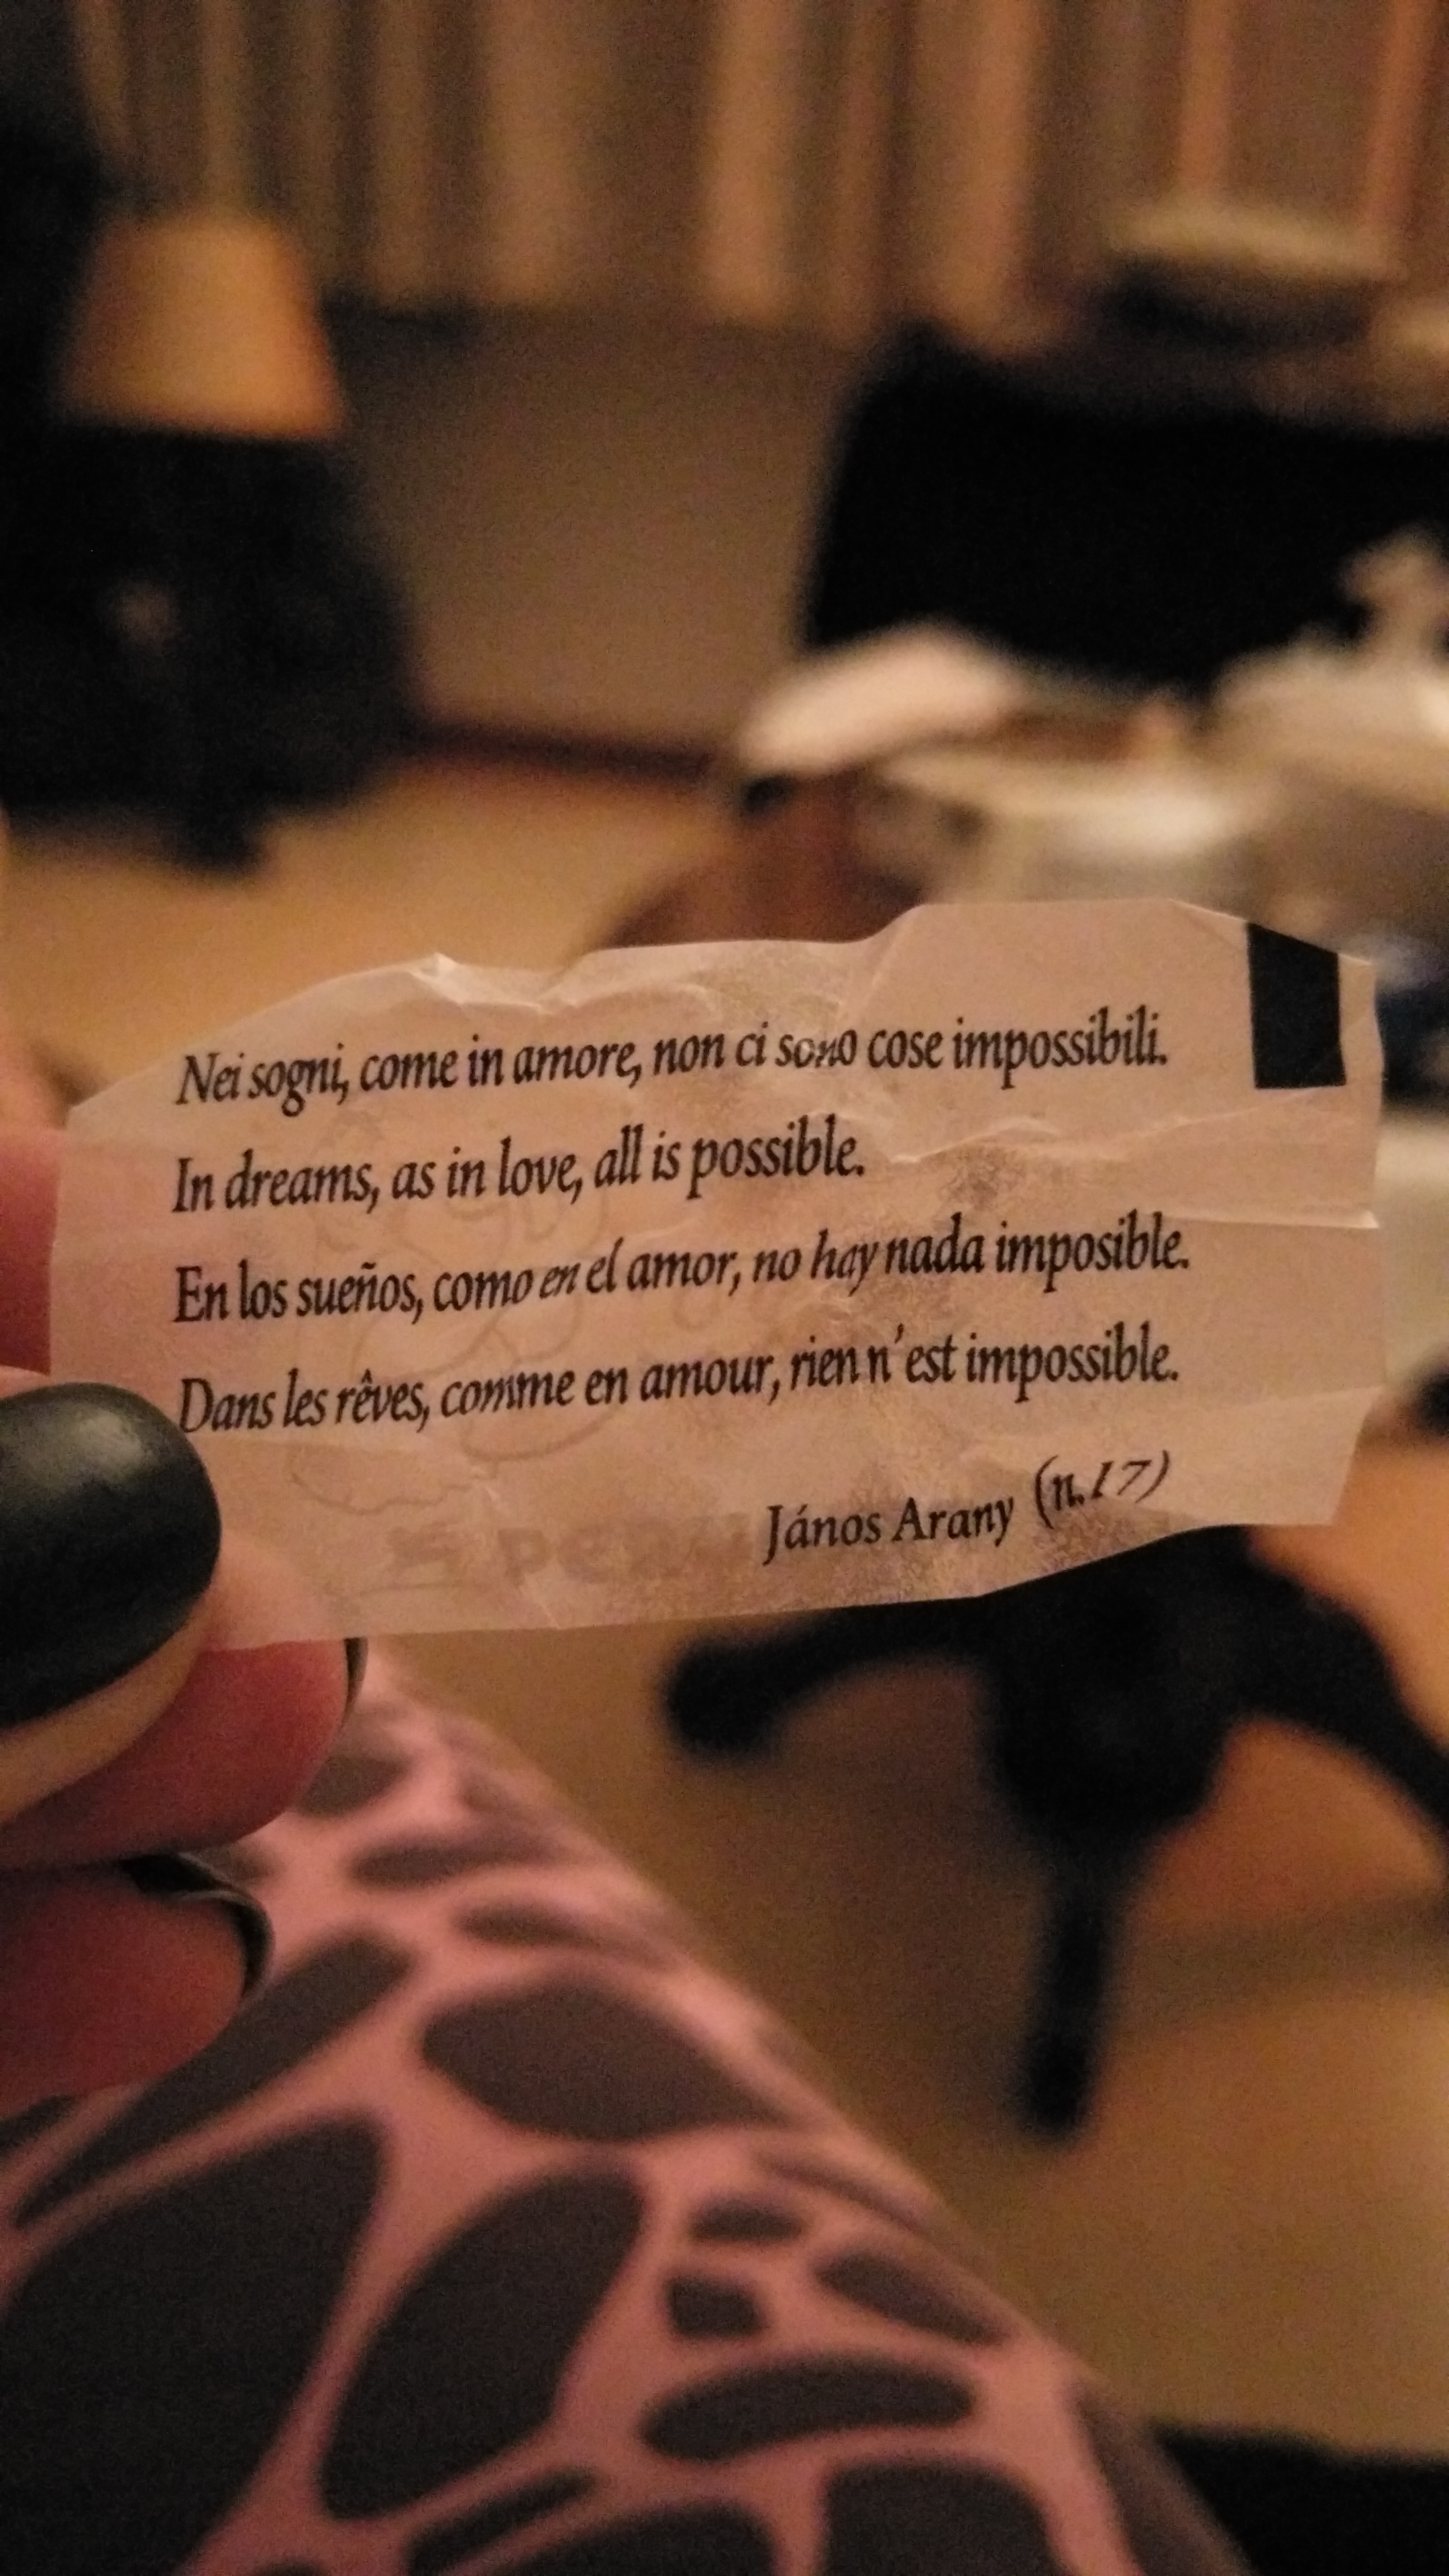 Nei sogni, come in amore, non ci sono cose impossibili.
In dreams, as in love, all is possible.
En los sueños, como en el amor, no hay nada imposible.
Dans les rêves, comme en amour, rien n'est impossible.
János Arany (n.17)